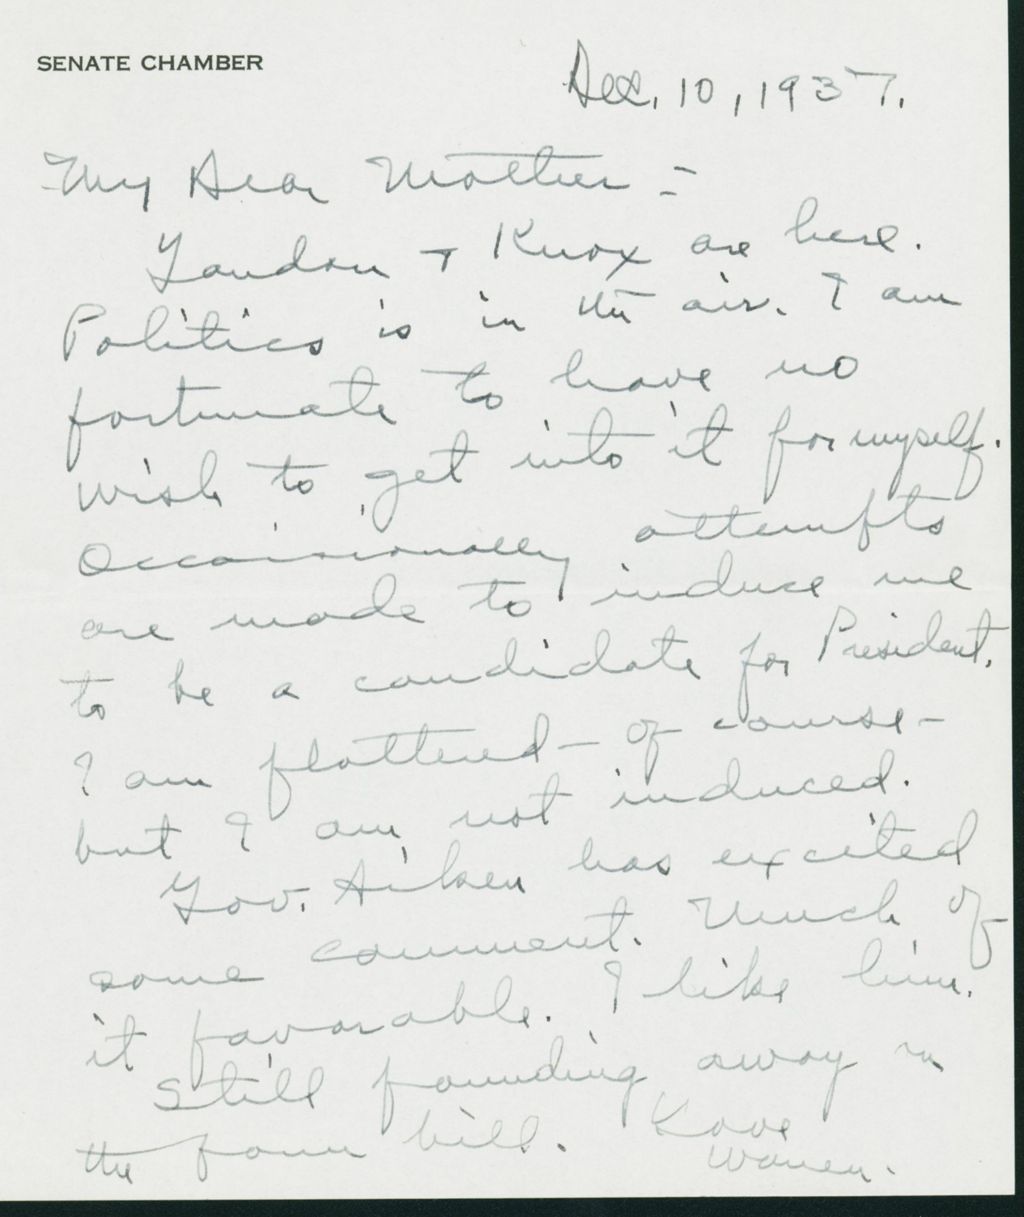 SENATE CHAMBER
Dec. 10, 1937.
My Dear Mother =
Landon + Knox are here.
Politics is in the air. I am
fortunate to have no
wish to get into it for myself.
Occaisionally attempts
are made to induce me
to be a candidate for President.
I am flattered - of course -
but I am not induced.
Gov. Aiken has excited
some comment. Much of
it favorable. I like him.
Still pounding away on
the farm bill. Love
Warren.